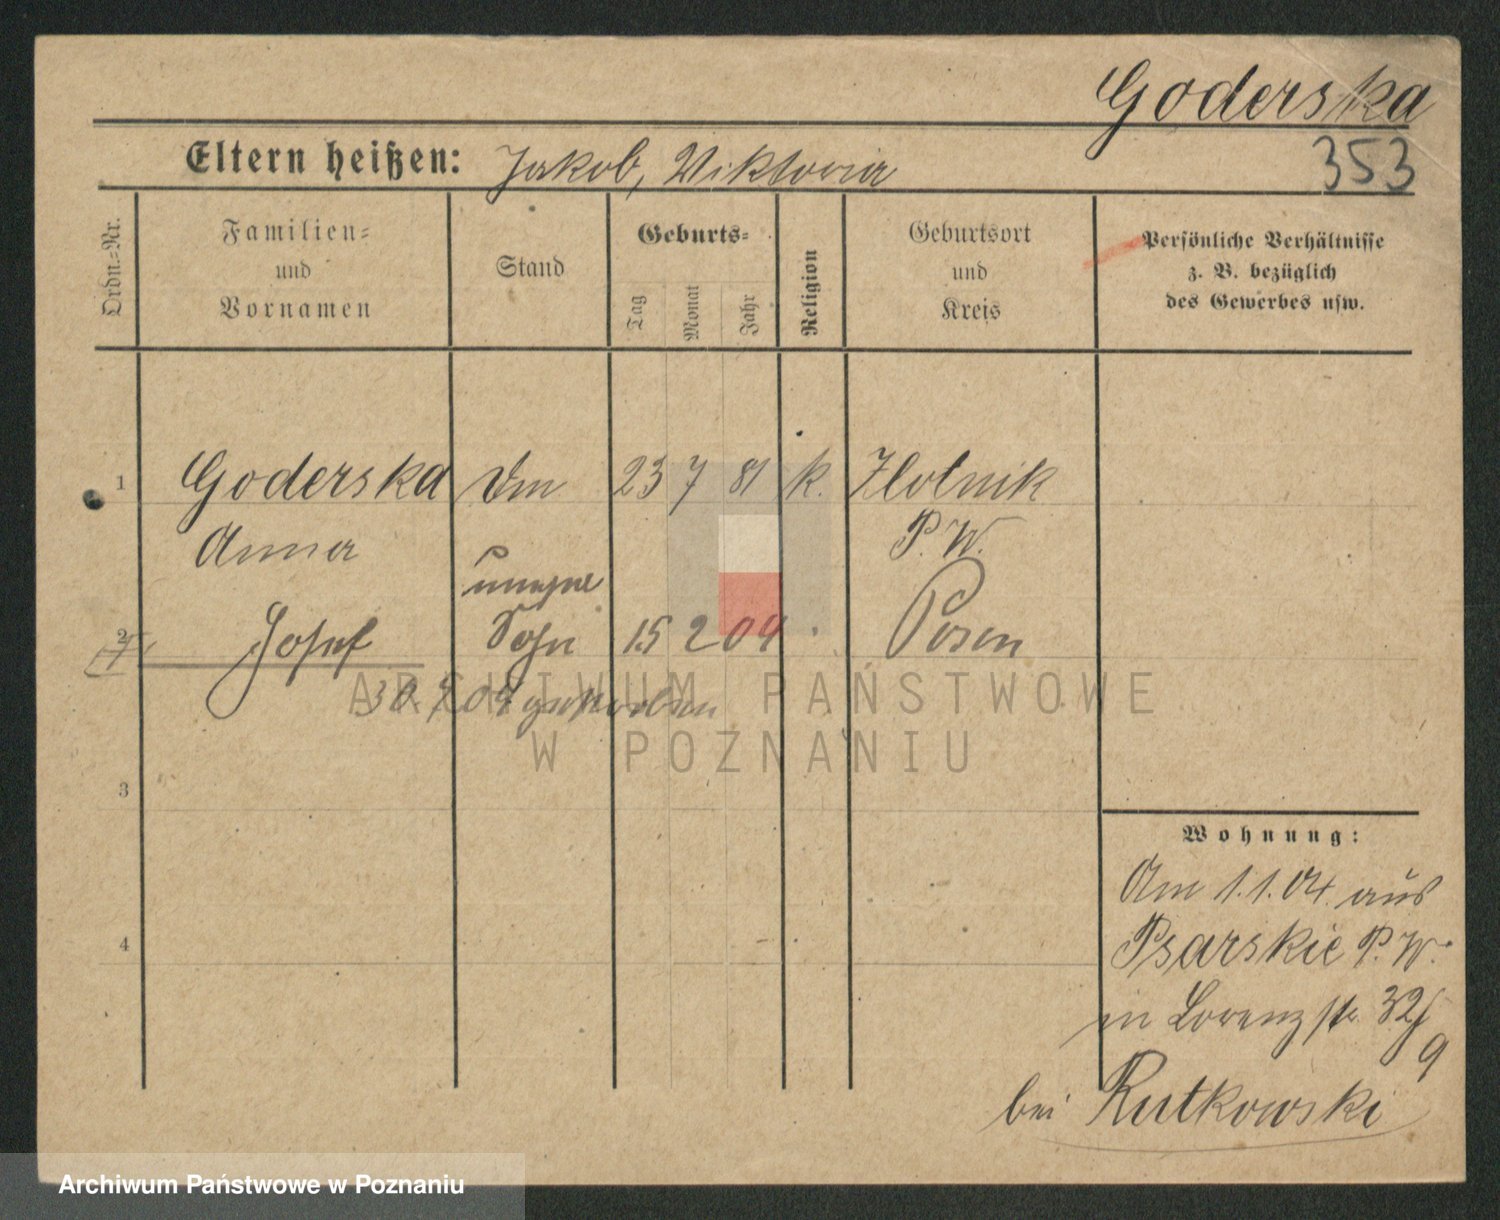 Goderska
353
Eltern heißen: Jakob, Viktoria
Ordn.-Nr.
Familien-
und
Vornamen
Stand
Geburts-
Tag
Monat
Jahr
Religion
Geburtsort
und
Kreis
Persönliche Verhältnisse
z. B. bezüglich
des Gewerbes usw.
1 Goderska 23 7 81 k. Zlotnik
Anna P. W.
unehel
2 Josef Sohn 15 2 04 Posen
30.7.04 gestorben
ARCHIWUM PAŃSTWOWE
W POZNANIU
3
4
Wohnung:
Am 1.1.04. aus
Psarskie P. W.
in Lorenzstr. 32/
9
bei Rutkowski
Archiwum Państwowe w Poznaniu